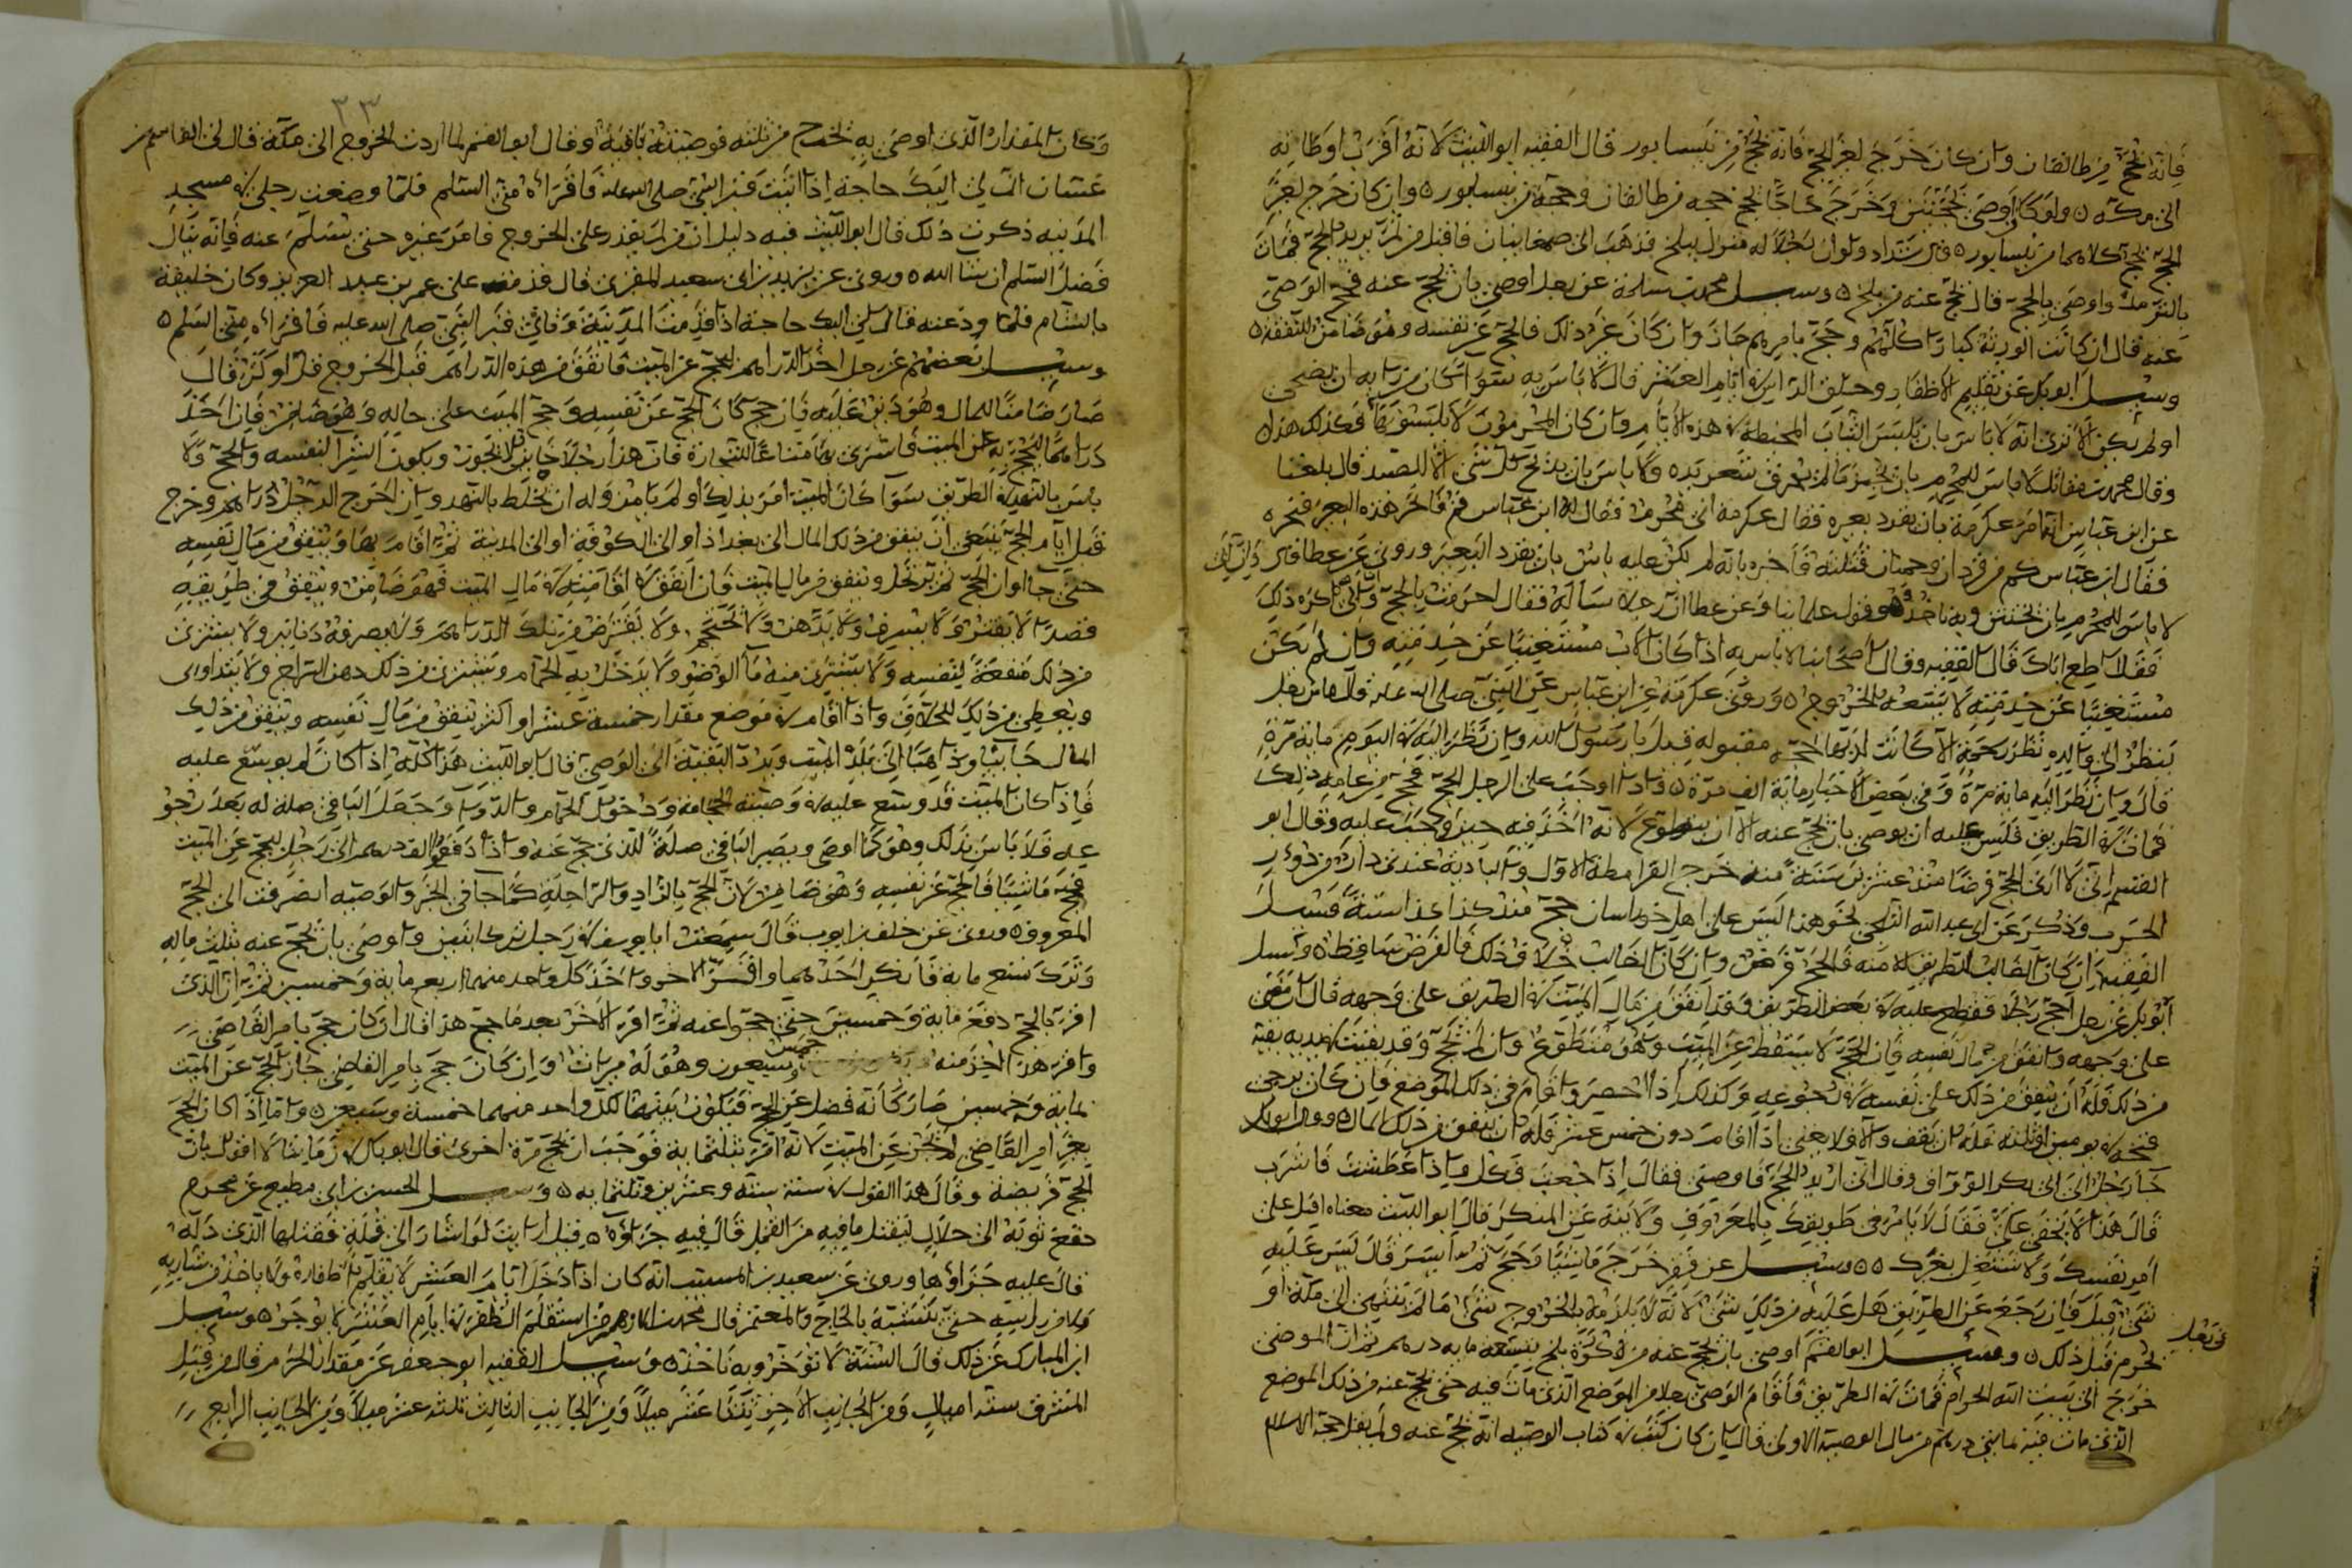 فانه يحج من طالقان وان كان خرج لغير الحج فانه يحج من نيسابور قال الفقيه ابو الليث لانه اقرب اوطانه
الى مكة ولو كان اوصى بحجتين وخرج حاجا يحج حجة من طالقان وحجة من نيسابور وان كان خرج لغير
الحج يحج كلاهما من نيسابور قال شداد ولو ان رجلا له منزل ببلخ فذهب الى صغانيان فاقبل من ثم يريد الحج فمات
بالترمذ واوصى بالحج قال يحج عنه من بلخ وسئل محمد بن سلمة عن رجل اوصى بان يحج عنه فحج الوصي
عنه قال ان كانت الورثة كبارا كلهم وحج بامرهم جاز وان كان غير ذلك فالحج عن نفسه وهو ضامن للنفقة
وسئل ابو بكر عن تقليم الاظفار وحلق الراس في ايام العشر قال لا باس به سواء كان من رايه ان يضحي
او لم يكن الا ترى انه لا باس بان يلبس الثياب المخيطة في هذه الايام وان كان المحرمون لا يلبسونها فكذلك هذا
وقال محمد بن مقاتل لا باس للمحرم بان يحتجم ما لم يحلق شعر بدنه ولا باس بان يذبح كل شئ الا الصيد قال بلغنا
عن ابن عباس انه امر عكرمة بان يقرد بعيره فقال عكرمة اني محرم فقال له ابن عباس قم فانحر هذه البعير فنحره
فقال ابن عباس كم من قراد وحمنان قتلته فاخبره بانه لم يكن عليه باس بان يقرد البعير وروى عن عطا
لا باس للمحرم بان يختتن وبه ناخذ وهو قول علمائنا وعن عطا ان رجلا سأله فقال احرمت بالحج وان ابي كره ذلك
فقال اطع اباك قال الفقيه وقال اصحابنا لا باس به اذا كان الاب مستغنيا عن خدمته وان لم يكن
مستغنيا عن خدمته لا يسعه الخروج وروى عكرمة عن ابن عباس عن النبي صلى الله عليه قال ما من رجل
ينظر الى والديه نظر رحمة الا كانت له بها حجة مقبولة قيل يا رسول الله وان نظر اليه في اليوم مائة مرة
قال وان نظر اليه مائة مرة وفي بعض الاخبار مائة الف مرة واذا وجب على الرجل الحج فحج من عامه ذلك
فمات في الطريق فليس عليه ان يوصي بان يحج عنه الا ان يتطوع لانه اخذ فيه حين وجب عليه وقال ابو
القسم اني لا ارى الحج فرضا منذ عشرين سنة منذ خرج القرامطة الاول والبادية عندي دار من دور
الحرب وذكر عن ابي عبد الله الثلجي نحو هذا ليس على اهل خراسان حج منذ كذا كذا سنة فسئل
الفقيه ان كان الغالب للطريق السلامة فالحج فرض وان كان الغالب خلاف ذلك فالفرض ساقط وسئل
ابو بكر عن رجل احج رجلا فقطع عليه في بعض الطريق وقد انفق من مال الميت في الطريق على وجهه قال ان مضى
على وجهه وانفق من مال نفسه فان الحج لا يسقط عن الميت وهو متطوع وان لم يحج وقد بقيت بيديه بقية
من ذلك فله ان ينفق من ذلك على نفسه في رجوعه وكذلك اذا احصر واقام في ذلك الموضع فان كان يرجى
فتحه في يومين او ثلثة فله ان يقف والا فلا يعني اذا اقام دون خمس عشر فله ان ينفق من ذلك المال وقال ابو بكر
جا رجل الى ابي بكر الوراق وقال اني اريد الحج فاوصني فقال اذا جعت فكل واذا عطشت فاشرب
قال هذا لا يخفى علي فقال لا تامر في طريقك بالمعروف ولا تنه عن المنكر قال ابو الليث معناه اقبل على
امر نفسك ولا تشتغل بغيرك وسئل عن فقير خرج ماشيا وحج ثم ايسر قال ليس عليه
شئ قيل فان رجع عن الطريق هل عليه من ذلك شئ لانه لا يلزمه بالخروج شئ ما لم ينته الى مكة او
يحرم قبل ذلك وسئل ابو القسم اوصى بان يحج عنه من كورة بلخ بتسعمائة درهم ثم ان الموصى
خرج الى بيت الله الحرام فمات في الطريق فاقام الوصي رجلا من الموضع الذي مات فيه حتى يحج عنه من ذلك الموضع
الذي مات فيه مايتي درهم من مال الوصية الاولى قال ان كان كتب في كتاب الوصية انه يحج عنه ولم يقل حجة الاسلام
٣٣
وكان المقدار الذي اوصى به يخرج من ثلثه فوصيته باقية وقال ابو القسم لما اردت الخروج الى مكة قال لي القاسم بن
عثمان ان لي اليك حاجة اذا اتيت قبر النبي صلى الله عليه فاقراه مني السلم فلما وضعت رجلي في مسجد
المدينة ذكرت ذلك قال ابو الليث فيه دليل ان من لم يقدر على الخروج فامر غيره حتى يسلم عنه فانه ينال
فضل السلم ان شا الله وروى عن يزيد بن ابي سعيد المقبري قال قدمت على عمر بن عبد العزيز وكان خليفة
بالشام فلما ودعته قال لي اليك حاجة اذا قدمت المدينة وترى قبر النبي صلى الله عليه فاقراه مني السلم
وسئل بعضهم عن رجل اخذ الدراهم ليحج عن الميت فانفق من هذه الدراهم قبل الخروج قل او كثر قال
صار ضامنا للمال وهو دين عليه فان حج كان الحج عن نفسه وحج الميت على حاله وهو ضامن فان اخذ
دراهما ليحج به عن الميت فاشترى بها متاعا للتجارة قال هذا رجل خاين لا يجوز ويكون الشرا لنفسه والحج ولا
باس بالنهد في الطريق سوا كان الميت امر بذلك او لم يامر وله ان يخلط بالنهد وان اخرج الرجل الدراهم وخرج
قبل ايام الحج ينبغي ان ينفق من ذلك المال الى بغداذ او الى الكوفة او الى المدينة ثم اقام بها وينفق من مال نفسه
حتى جا اوان الحج ثم يرتحل وينفق من مال الميت فان انفق في اقامته من مال الميت فهو ضامن وينفق في طريقه
قصدا لا يقتر ولا يسرف ولا يدهن ولا يحتجم ولا يقترض من تلك الدراهم ولا يصرفه دنانير ولا يشتري
من ذلك منفعة لنفسه ولا يشتري منه ما الوضوء ولا يدخل به الحمام ويشتري من ذلك دهن السراج ولا يتداوى
ويعطي من ذلك للحلاق واذا اقام في موضع مقدار خمسة عشر او اكثر ينفق من مال نفسه وينفق من ذلك
المال جائيا وذاهبا الى بلد الميت ويرد البقية الى الوصي قال ابو الليث هذا كله اذا كان لم يوسع عليه
فاذا كان الميت قد وسع عليه في وصيته الحجامة ودخول الحمام والدوا وجعل الباقي صلة له بعد رجو
عه فلا باس بذلك وهو كما اوصى ويصير الباقي صلة للذي حج عنه واذا دفع الف درهم الى رجل ليحج عن الميت
فحج ماشيا فالحج عن نفسه وهو ضامن لان الحج بالزاد والراحلة كما جا في الخبر والوصية انصرفت الى الحج
المعروف وروى عن خلف بن ايوب قال سمعت ابا يوسف في رجل ترك ابنين واوصى بان يحج عنه بثلث ماله
وترك تسع مائة فانكر احدهما واقر الاخر واخذ كل واحد منهما اربع مائة وخمسين ثم ان الذي
اقر بالحج دفع مائة وخمسين حتى حجوا عنه ثم اقر الاخر بعد ما حج هذا قال ان كان حج بامر القاضي
واقر هذا اخذ منه خمس وسبعون وهو له ميراث وان كان حج بامر القاضي جاز الحج عن الميت
بمائة وخمسين صار كانه فضل عن الحج فيكون بينهما لكل واحد منهما خمسة وسبعين واما اذا كان الحج
بغير امر القاضي لم يجز عن الميت لانه اقر بثلثمائة فوجب ان يحج مرة اخرى قال ابو بكر في زماننا لا اقول بان
الحج فريضة وقال هذا القول في سنة ستة وعشرين وثلثمايه وسئل الحسن بن ابي مطيع عن محرم
دفع ثوبه الى حلال ليقتل ما فيه من القمل قال فيه جزاؤه قيل ارايت لو اشار الى قملة فقتلها الذي دله
قال عليه جزاؤها وروى عن سعيد بن المسيب انه كان اذا دخل ايام العشر لا يقلم اظفاره ولا ياخذ من شاربه
ولا من راسه حتى يتشبه بالحاج والمعتمر قال محمد بن الازهر من استقلم الظفر في ايام العشر لا يوجر وسئل
ابن المبارك عن ذلك قال السنة لا تؤخر وبه ناخذ وسئل الفقيه ابو جعفر عن مقدار الحرم قال من قبل
المشرق ستة اميال ومن الجانب الاخر اثنا عشر ميلا ومن الجانب الثالث ثلثه عشر ميلا ومن الجانب الرابع